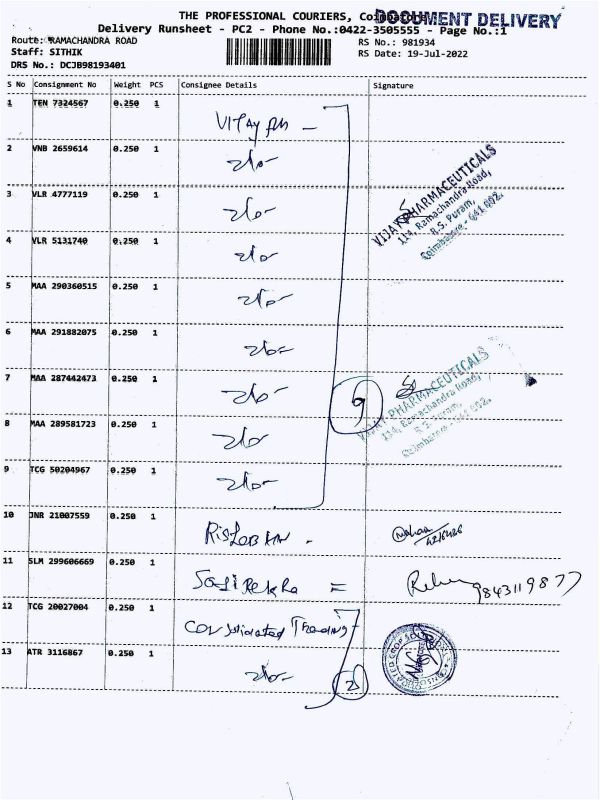 THE PROFESSIONAL COURIERS, Coimbatore
DOCUMENT DELIVERY
Delivery Runsheet - PC2 - Phone No.:0422-3505555 - Page No.:1
Route: RAMACHANDRA ROAD
RS No.: 981934
Staff: SITHIK
RS Date: 19-Jul-2022
DRS No.: DCJB98193401
S No Consignment No Weight PCS Consignee Details Signature
1 TEN 7324567 0.250 1
2 VNB 2659614 0.250 1
3 VLR 4777119 0.250 1
4 VLR 5131740 0.250 1
5 MAA 290360515 0.250 1
6 MAA 291882075 0.250 1
7 MAA 287442473 0.250 1
8 MAA 289581723 0.250 1
9 TCG 50204967 0.250 1
9
VIJAY PHARMACEUTICALS
114, Ramachandra Road,
R.S. Puram,
Coimbatore - 641 002.
VIJAY PHARMACEUTICALS
114, Ramachandra Road,
R.S. Puram,
Coimbatore - 641 002.
10 JNR 21007559 0.250 1
11 SLM 299606669 0.250 1 Sasirekha =
9843119877
12 TCG 20027004 0.250 1 Consolidated Trading
13 ATR 3116867 0.250 1
2